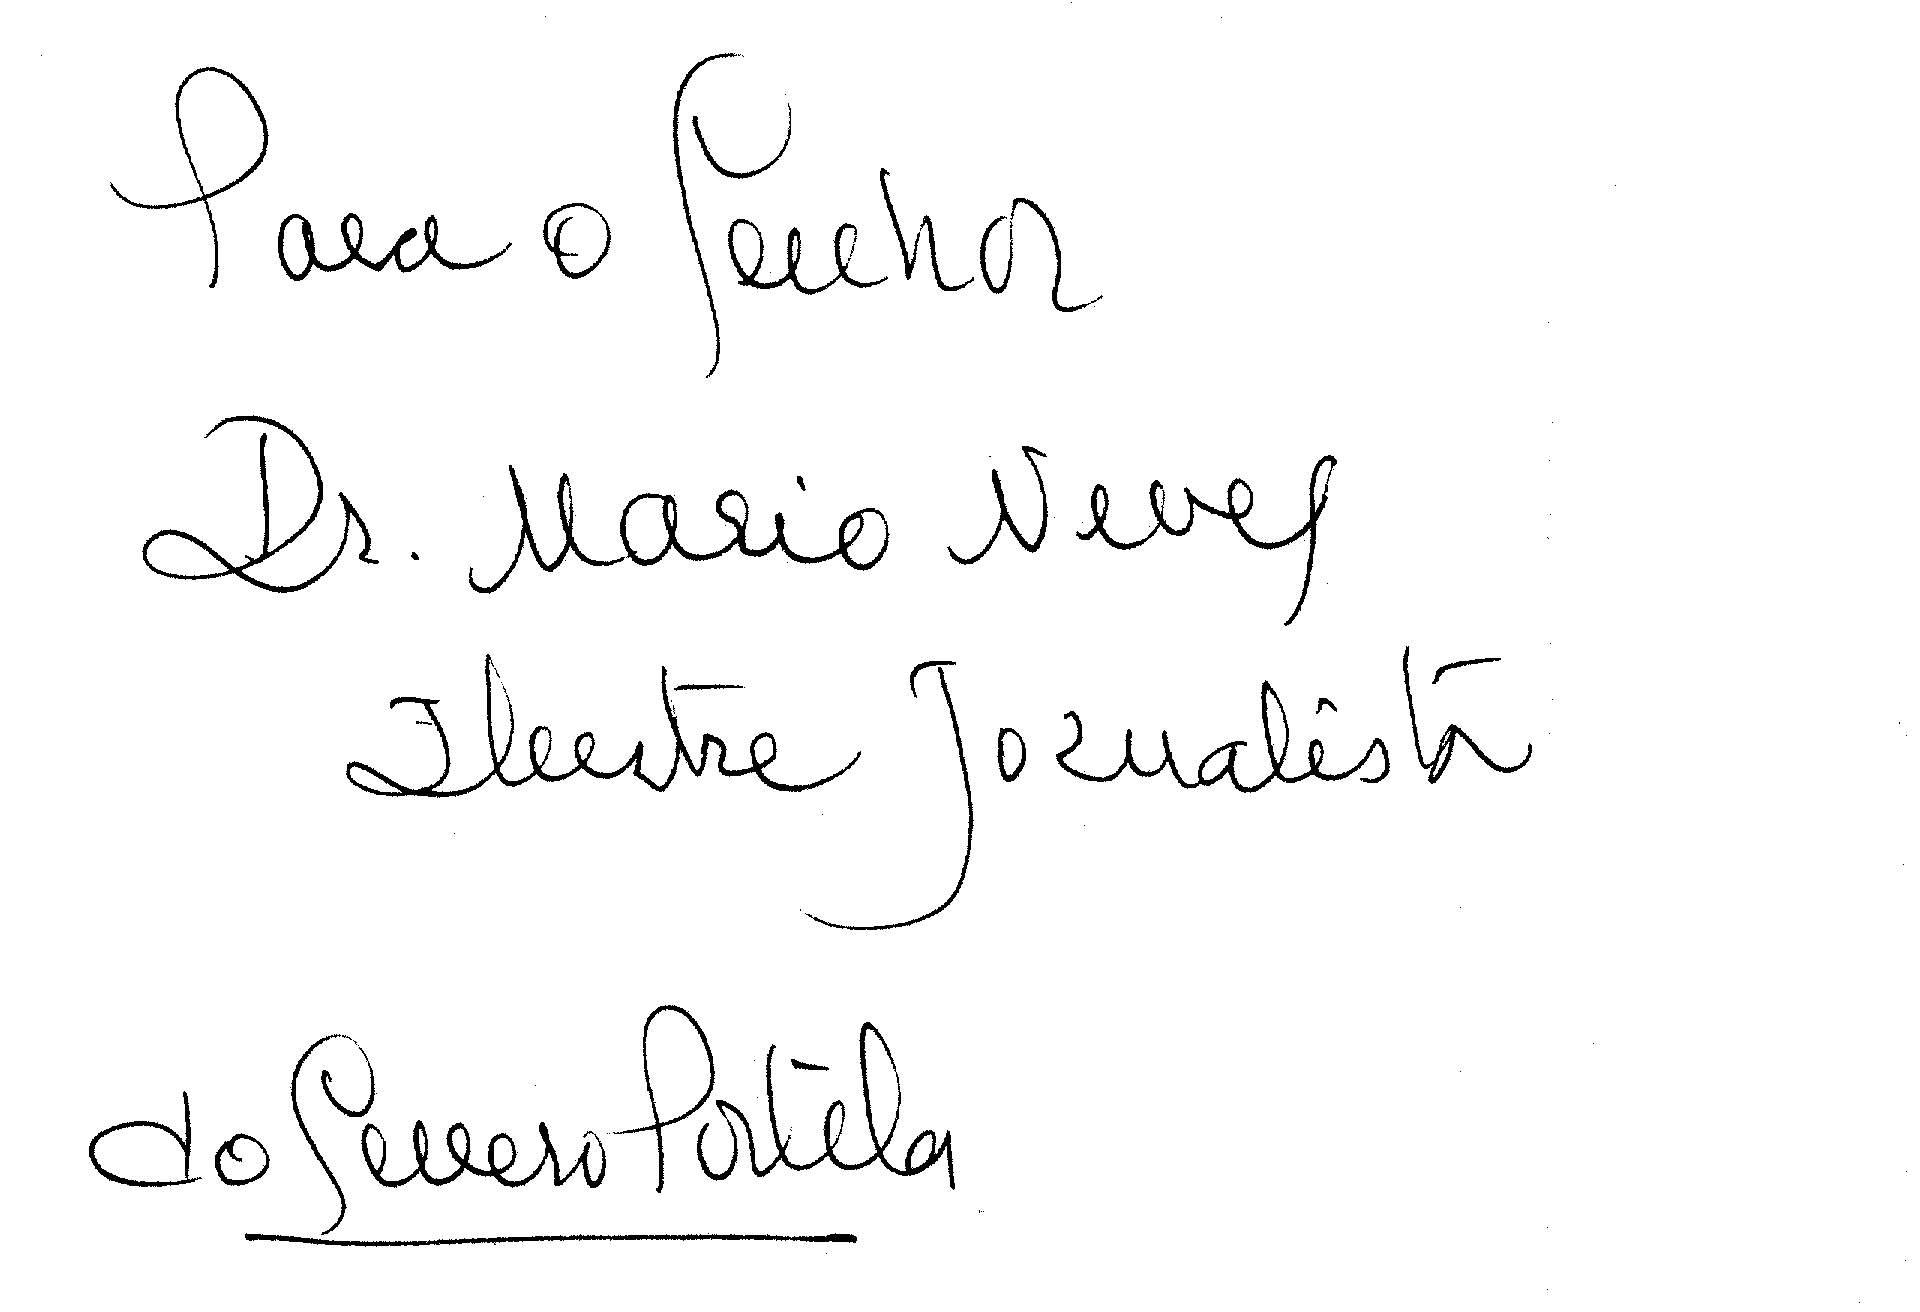 Para o Senhor
Dr. Mario Neves
Ilustre Jornalista
do Severo Portela